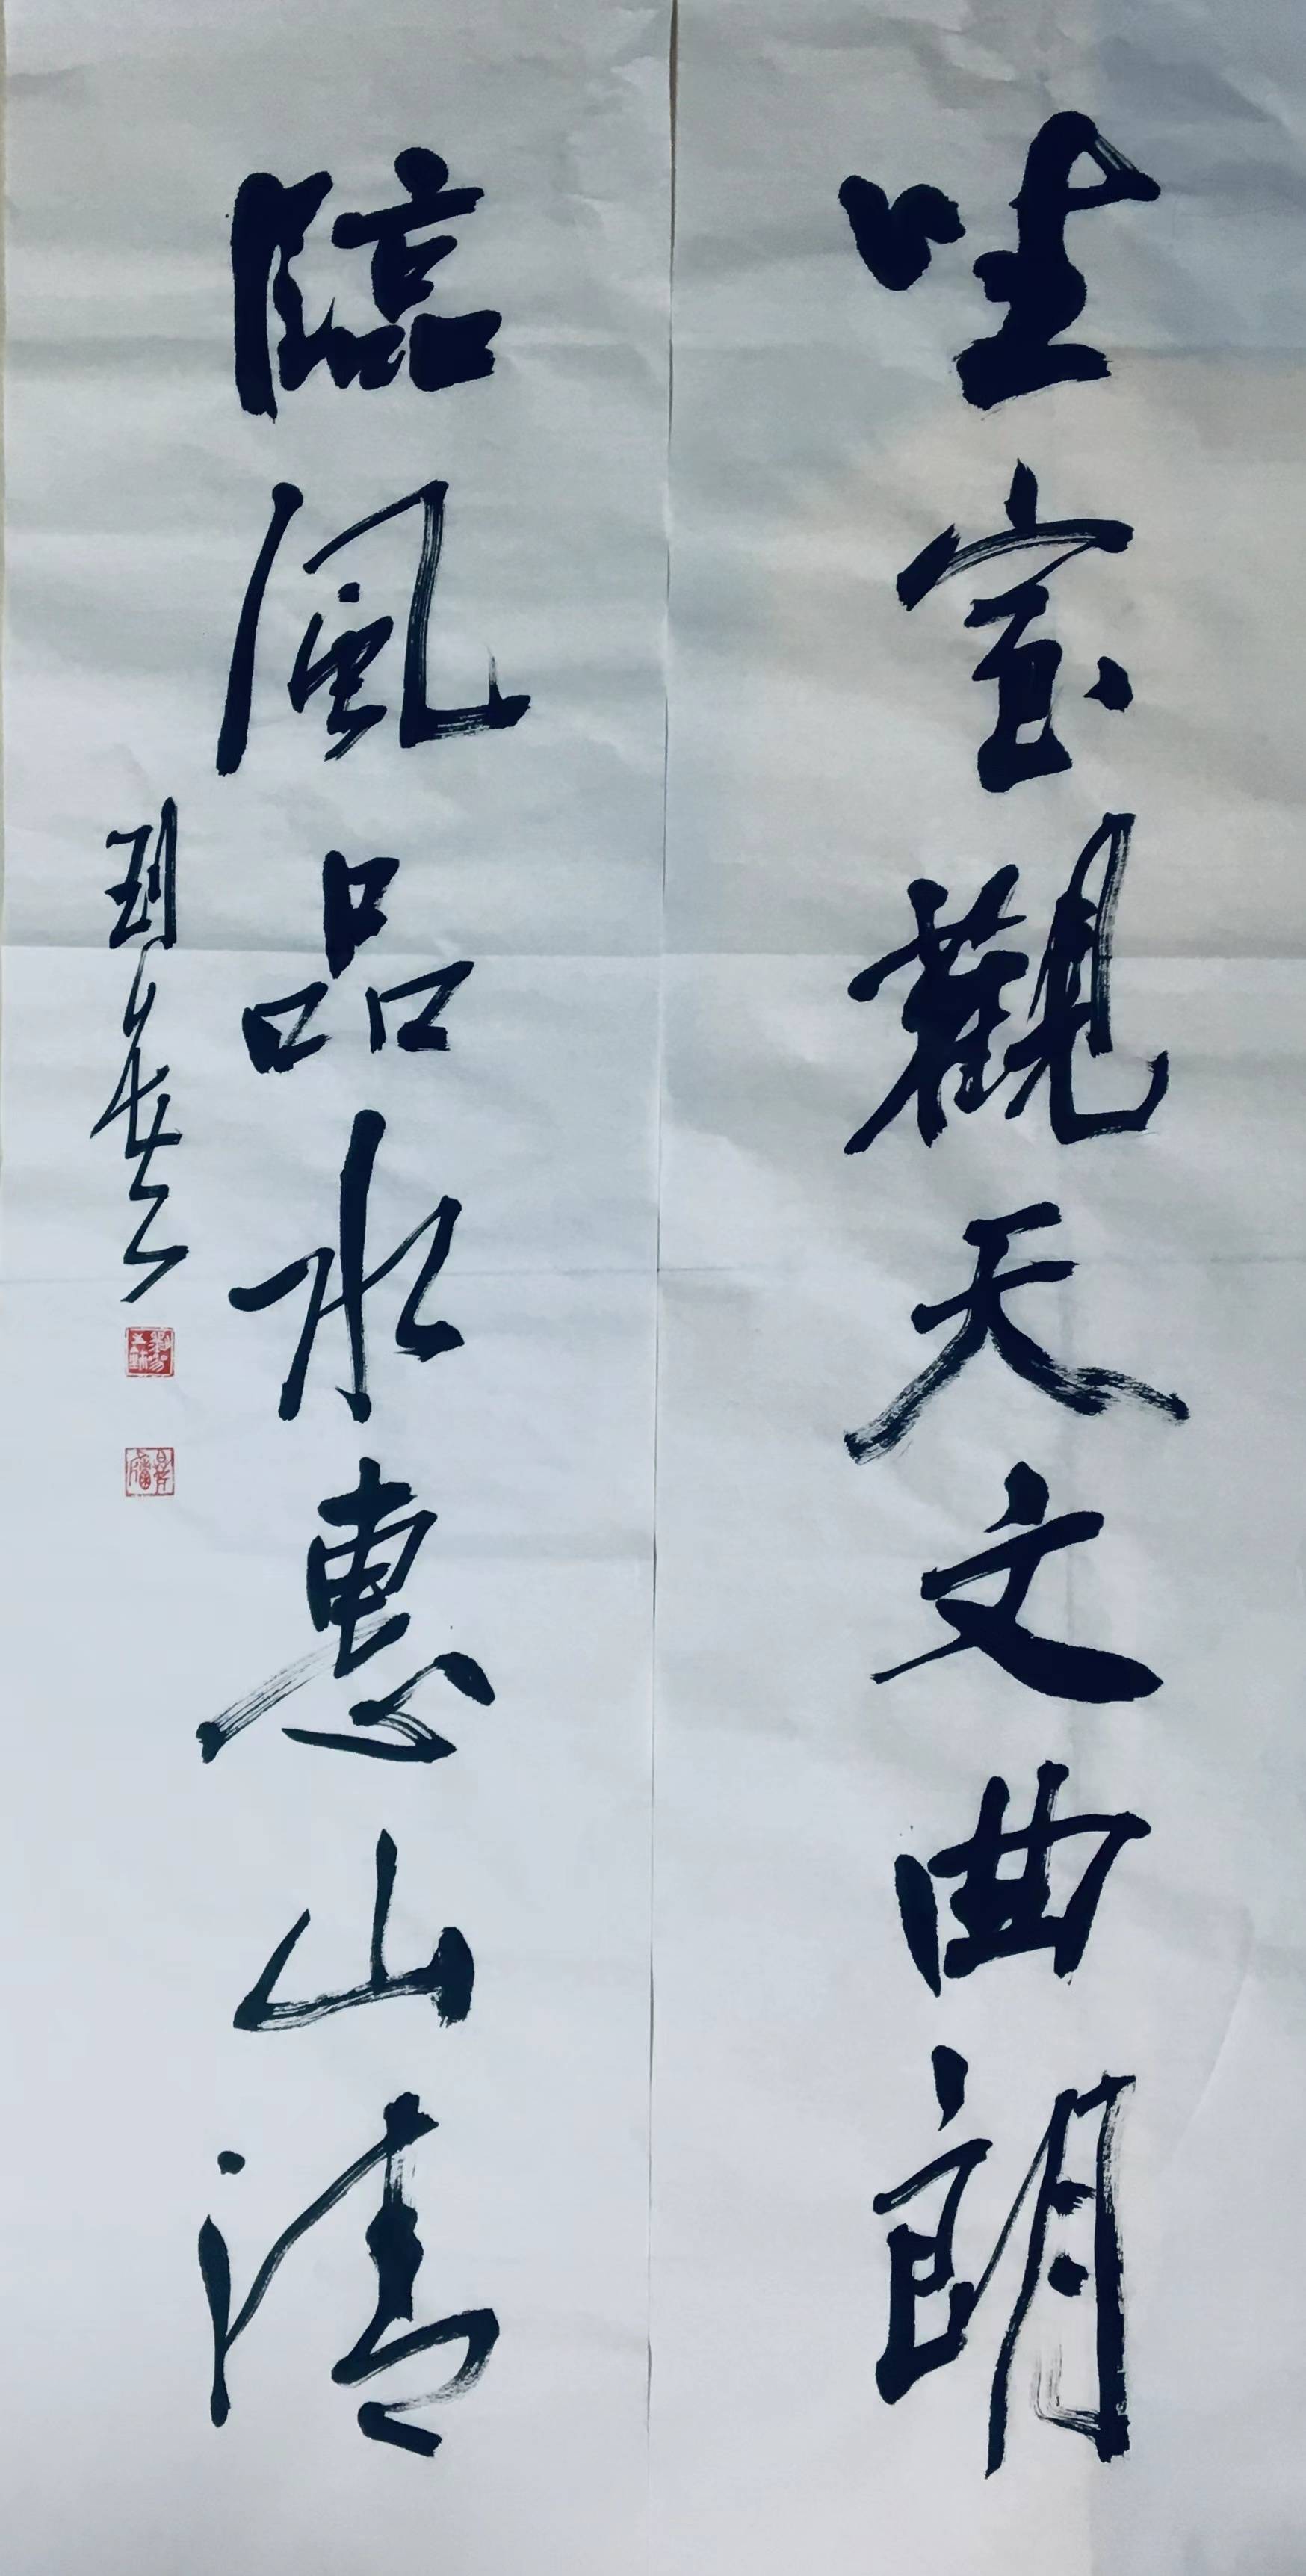 坐室觀天文曲朗
臨風品水惠山清